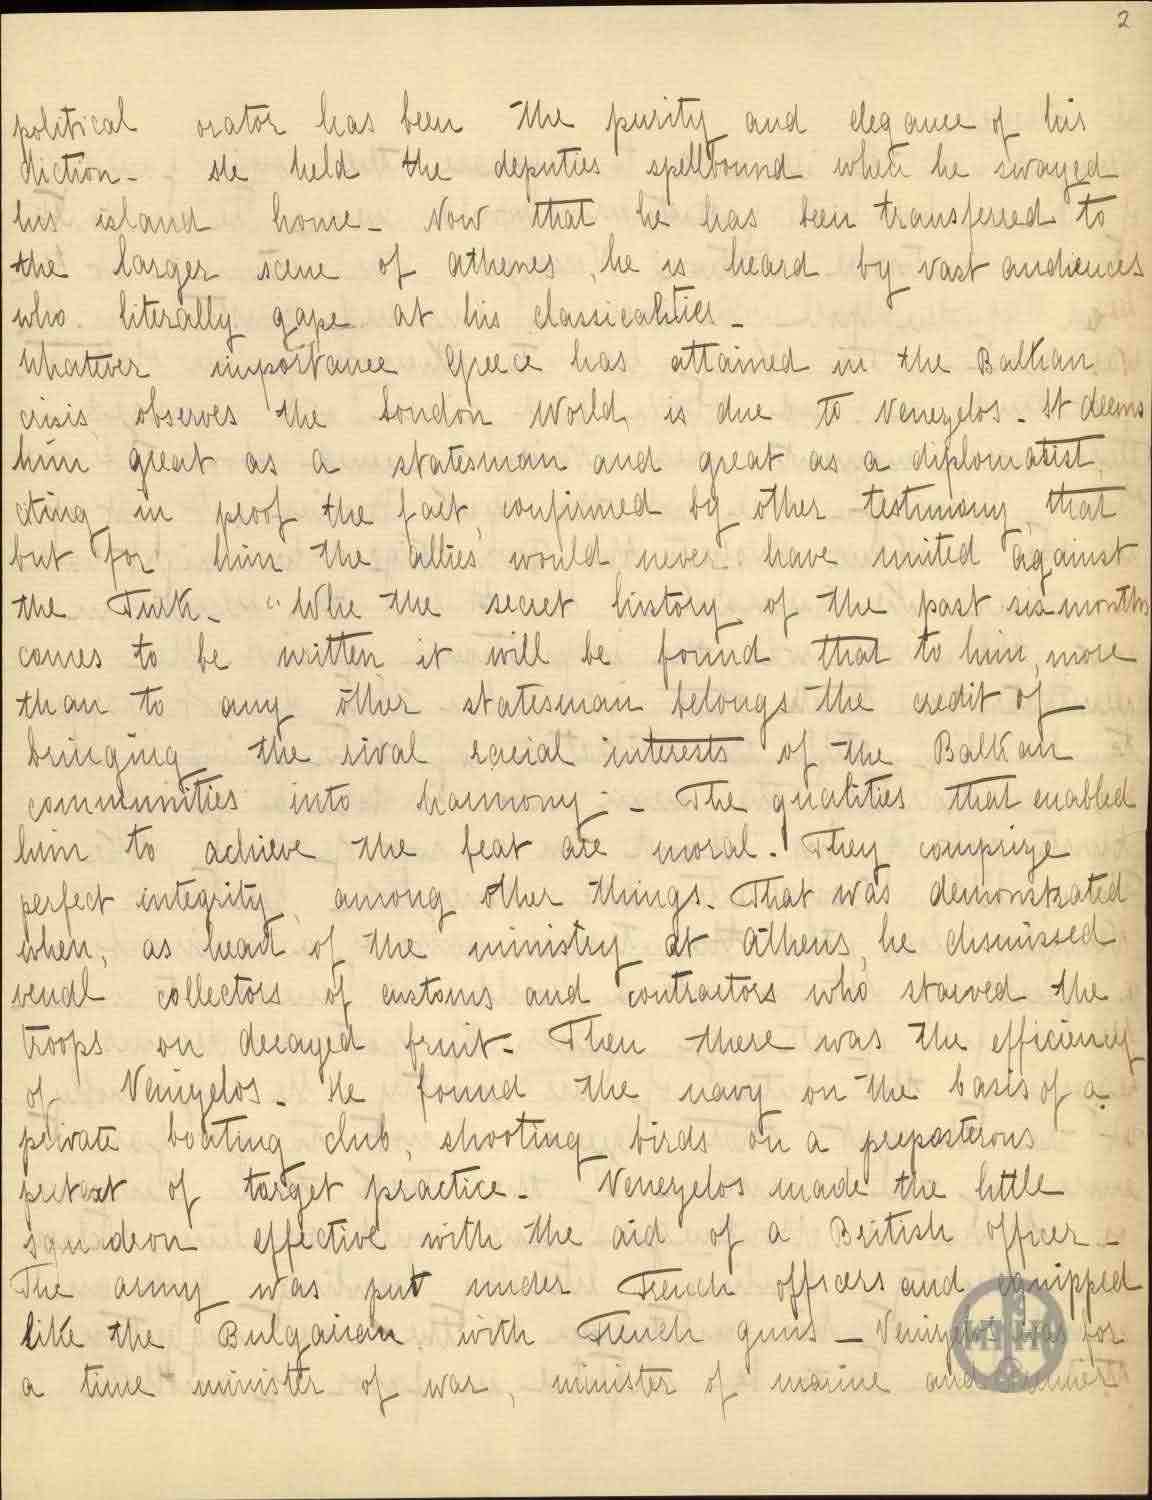 2
political orator has been the purity and elegance of his
diction - He held the deputies spellbound when he swayed
his island home - Now that he has been transferred to
the larger scene of athenes, he is heard by vast audiences
who literally gape at his classicalities -
Whatever importance Greece has attained in the Balkan
crisis, observes the London World, is due to Venezelos - It deems
him great as a statesman and great as a diplomatist,
citing in proof the fact, confirmed by other testimony, that
but for him the allies would never have united against
the Turk - "Whe the secret history of the past six months
comes to be written it will be found that to him, more
than to any other statesman belongs the credit of
bringing the rival racial interests of the Balkan
communities into harmony; - The qualities that enabled
him to achieve the feat are moral. They comprize
perfect integrity, among other things. That was demonstrated
when, as head of the ministry at Athens, he dismissed
venal collectors of customs and contractors who starved the
troops on decayed fruit - Then there was the efficiency
of Venizelos - He found the navy on the basis of a
private boating club, shooting birds on a preposterous
pretext of target practice - Venezelos made the little
squadron effective with the aid of a British officer -
The army was put under French officers and equipped
like the Bulgarian with French guns - Venizelos was for
a time minister of war, minister of marine and premier